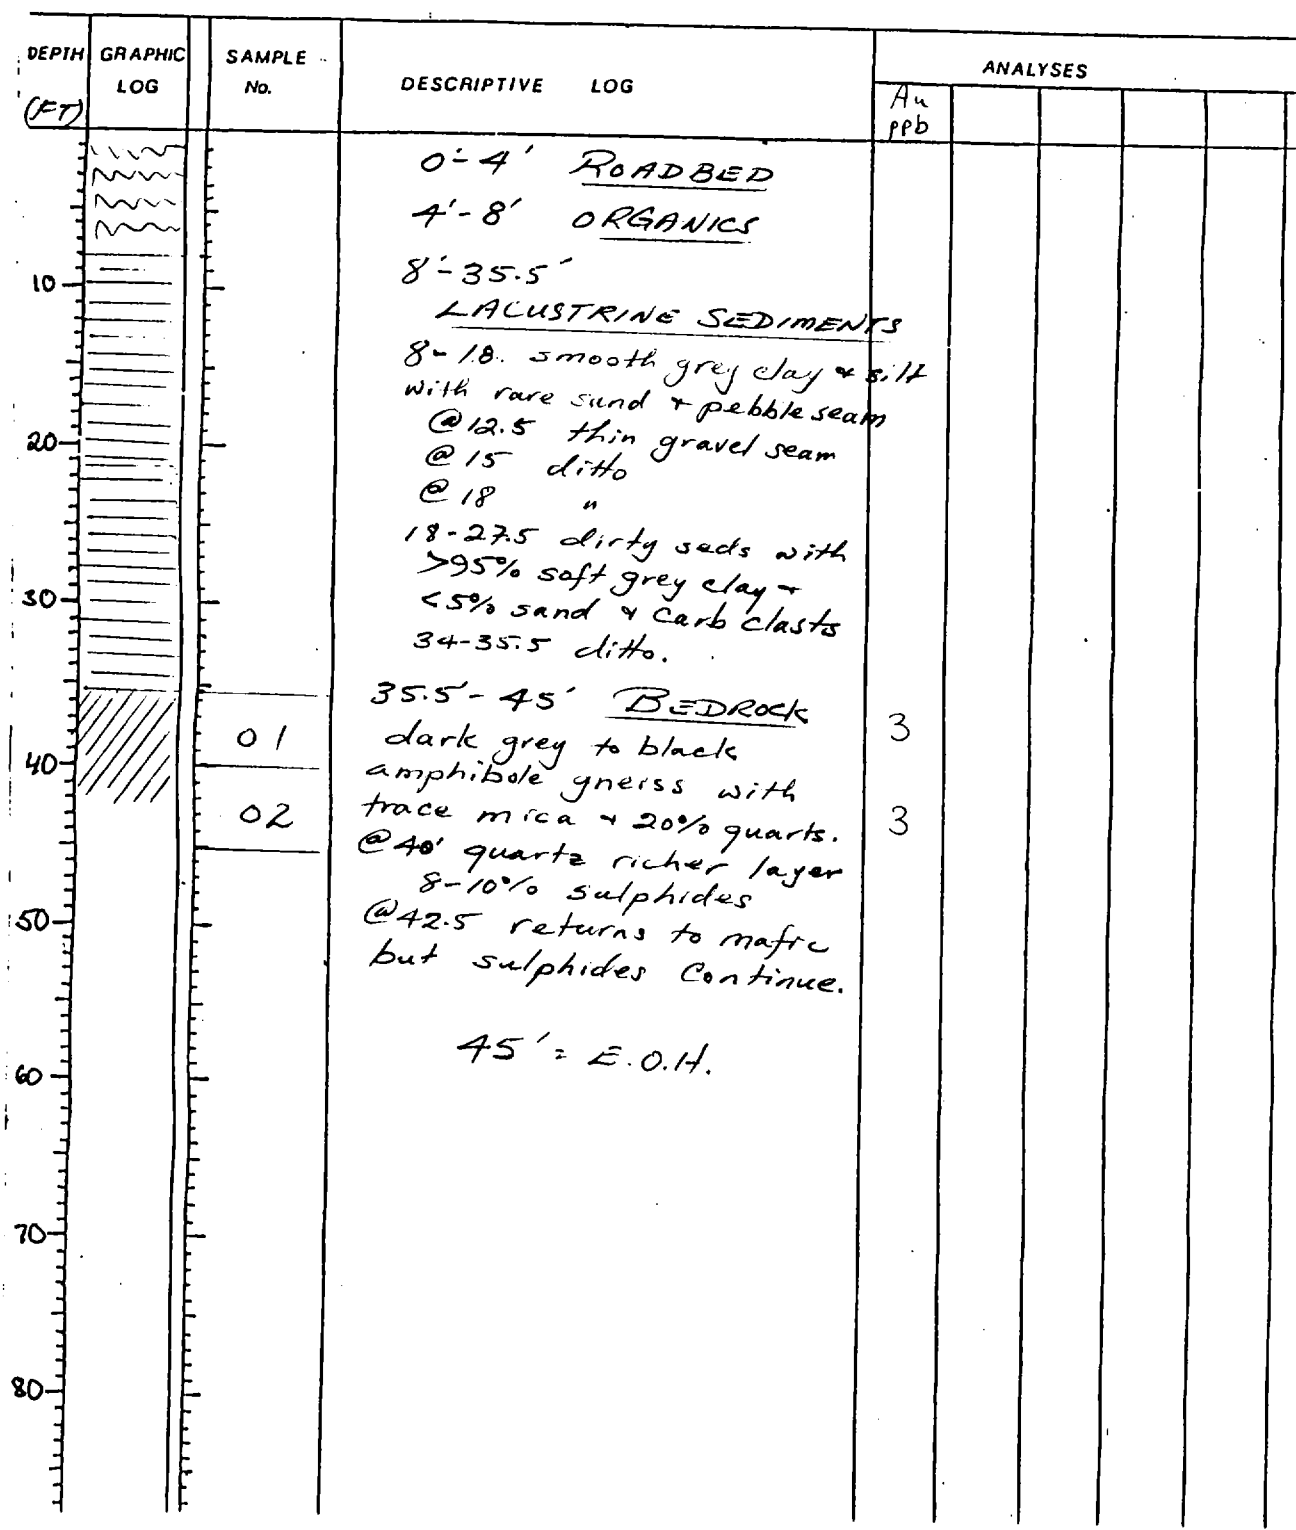 DEPTH GRAPHIC LOG SAMPLE No. DESCRIPTIVE LOG ANALYSES
(FT) Au ppb
0'-4' ROADBED
4'-8' ORGANICS
8'-35.5'
LACUSTRINE SEDIMENTS
8-18. smooth grey clay & silt
with rare sand & pebble seam
@12.5 thin gravel seam
@ 15 ditto
@ 18 "
18-27.5 dirty seds with
>95% soft grey clay &
<5% sand & carb clasts
34-35.5 ditto.
35.5'-45' BEDROCK
dark grey to black
amphibole gneiss with
trace mica & 20% quarts.
@40' quartz richer layer
8-10% sulphides
@42.5 returns to mafic
but sulphides Continue.
45' = E.O.H.
01 3
02 3
10
20
30
40
50
60
70
80